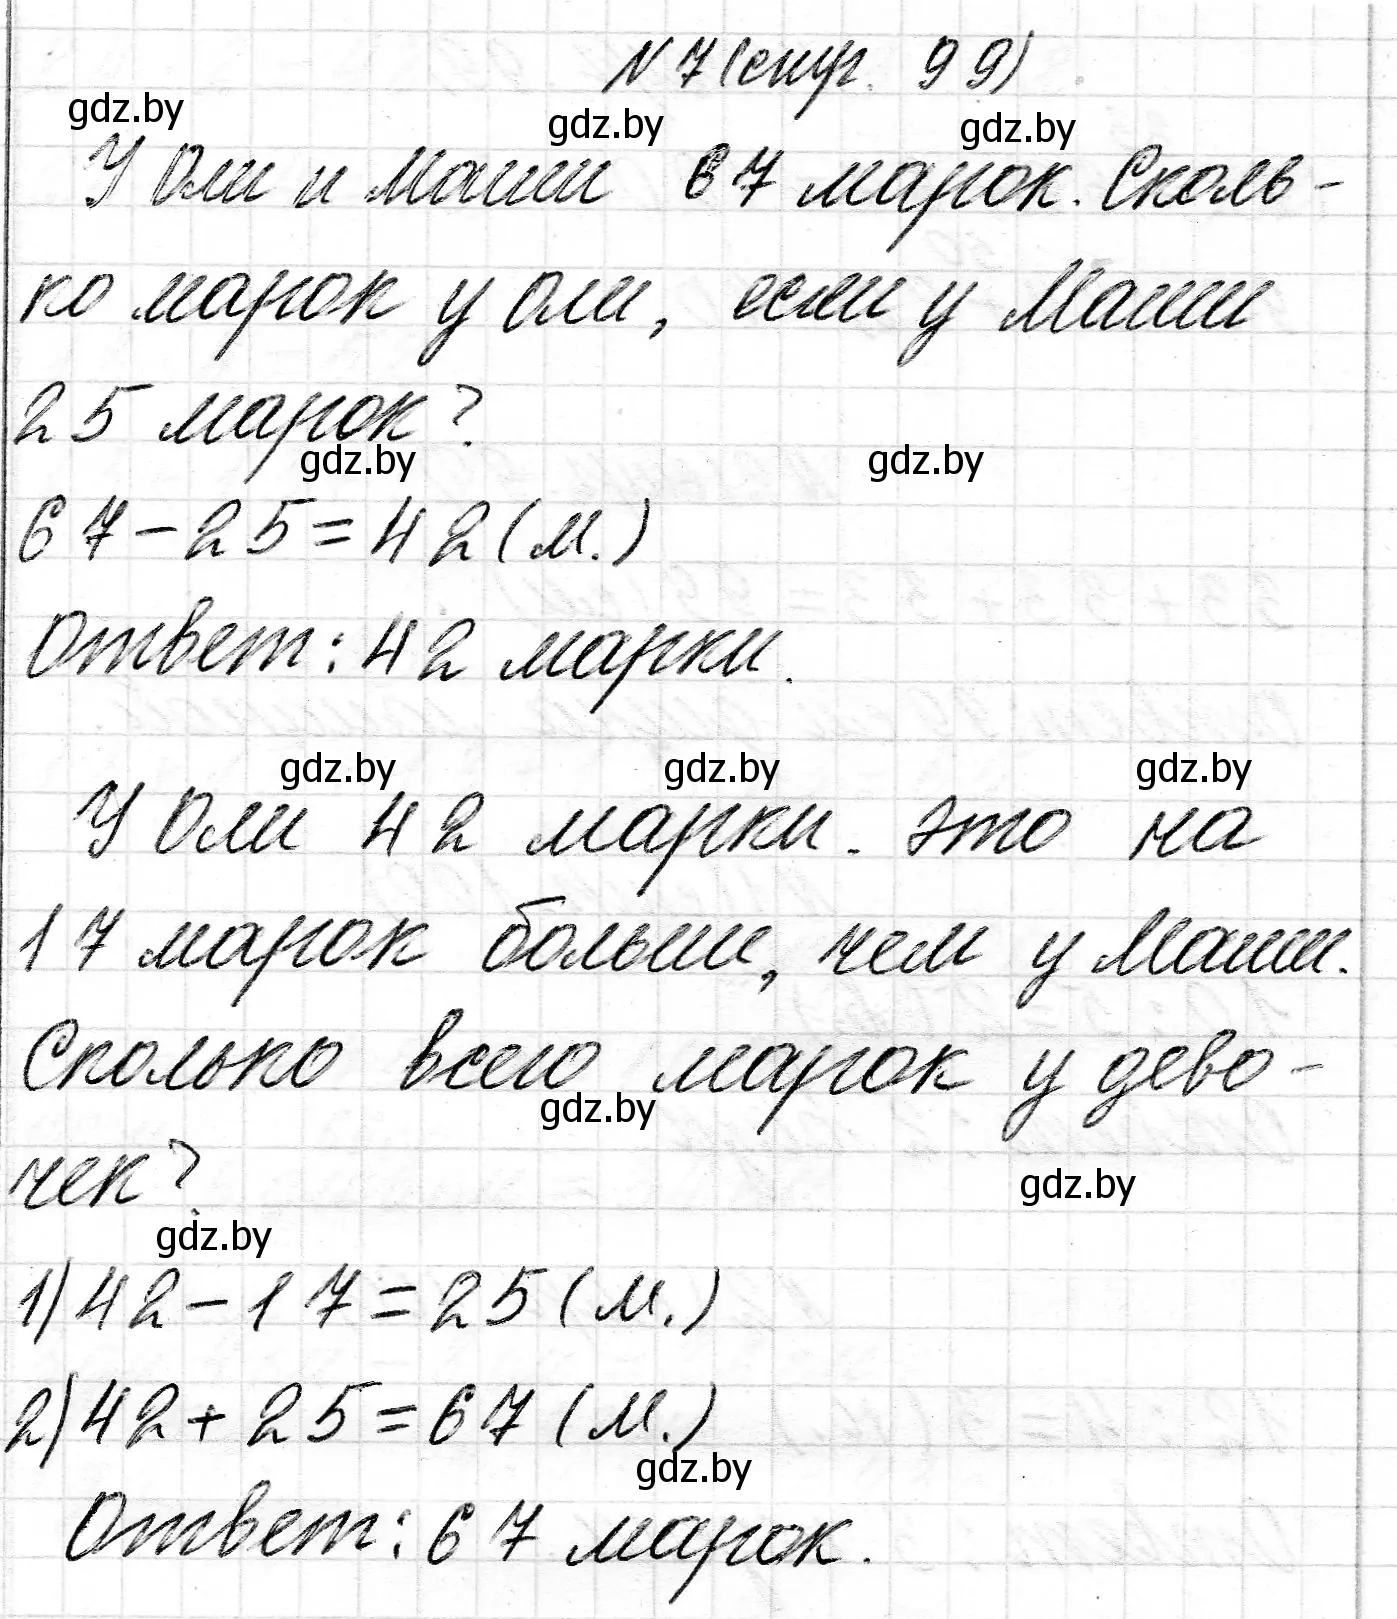 N 7 (стр. 99)
gdz.by gdz.by gdz.by
У Оли и Маши 67 марок. Сколь-
ко марок у Оли, если у Маши
25 марок?
gdz.by gdz.by
67 - 25 = 42 (м.)
Ответ: 42 марки.
gdz.by gdz.by gdz.by
У Оли 42 марки. это на
17 марок больше, чем у Маши.
Сколько всего марок у дево-
gdz.by
чек?
gdz.by
gdz.by
1) 42 - 17 = 25 (м.)
2) 42 + 25 = 67 (м.)
gdz.by
Ответ: 67 марок.